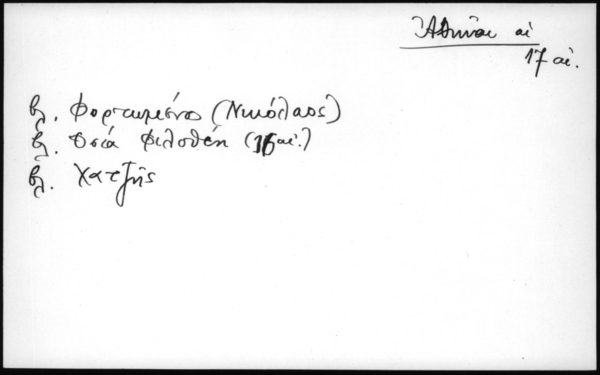 Ἀθῆναι αἱ
17 αἰ.
βλ. Φορτωμένος (Νικόλαος)
βλ. Ὁσία Φιλοθέη (16 αἰ.)
βλ. Χατζῆς